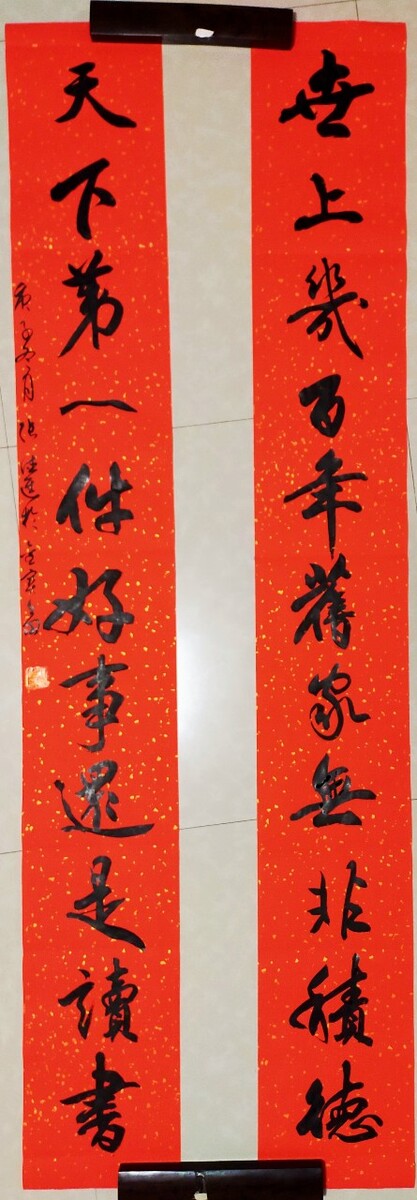 世上幾百年舊家無非積德
天下第一件好事還是讀書
庚子